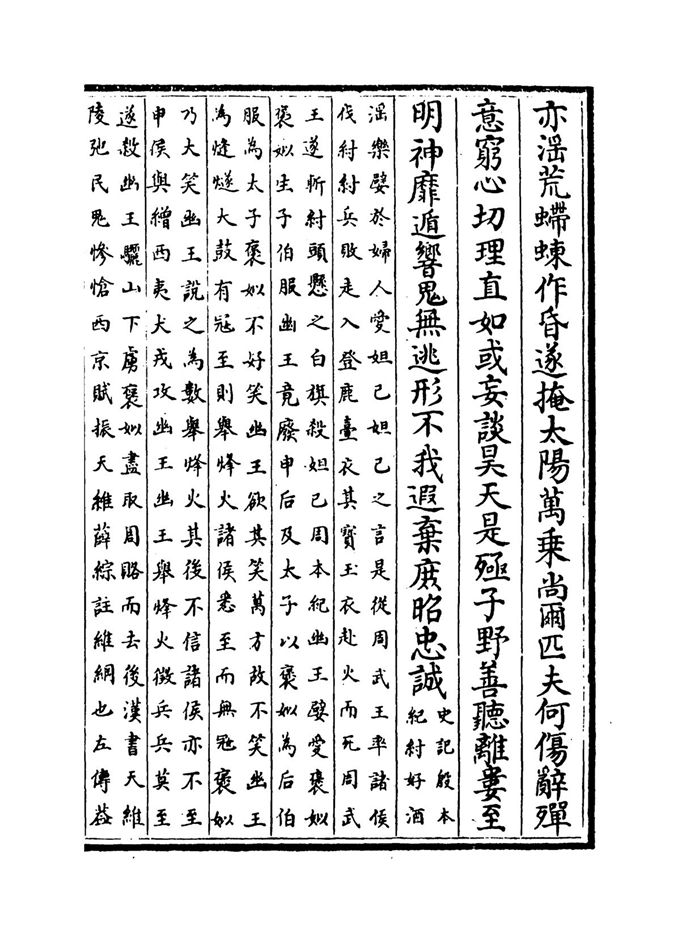 亦淫荒蠕蝀作昏遂掩太陽萬乗尚爾匹夫何傷辭殫
意窮心切理直如或妄談昊天是殛子野善聽離婁至
明神靡遁響鬼無逃形不我遐棄庶昭忠誠史記殷本
紀紂好酒
淫樂嬖於婦人愛妲己妲己之言是從周武王率諸侯
伐紂紂兵敗走入登鹿臺衣其寳玉衣赴火而死周武
王遂斬紂頭懸之白旗殺妲己周本紀幽王嬖愛褒姒
褒姒生子伯服幽王竟廢申后及太子以褒姒為后伯
服為太子褒姒不好笑幽王欲其笑萬方故不笑幽王
為㷭燧大鼓有冦至則舉烽火諸侯悉至而無冦褒姒
乃大笑幽王說之為數舉烽火其後不信諸侯亦不至
申侯與繒西夷犬戎攻幽王幽王舉烽火徵兵兵莫至
遂殺幽王驪山下虜褒姒盡取周賂而去後漢書天維
陵弛民鬼慘愴西京賦振天維薛綜註維綱也左傳葢